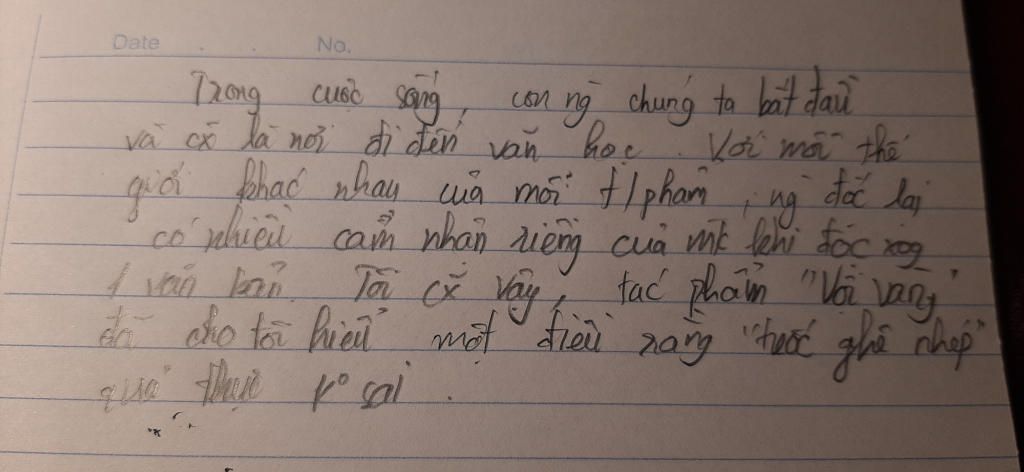 Date . . No.
Trong cuộc sống, con ng chúng ta bắt đầu
và cx là nơi đi đến văn học. Với mỗi thế
giới khác nhau của mỗi t/phẩm, ng đọc lại
có nhiều cảm nhận riêng của mk khi đọc xog
1 văn bản. Tôi cx vậy, tác phẩm "Vội vàng"
đã cho tôi hiểu một điều rằng "tước ghê nhép"
quả thực k° sai.